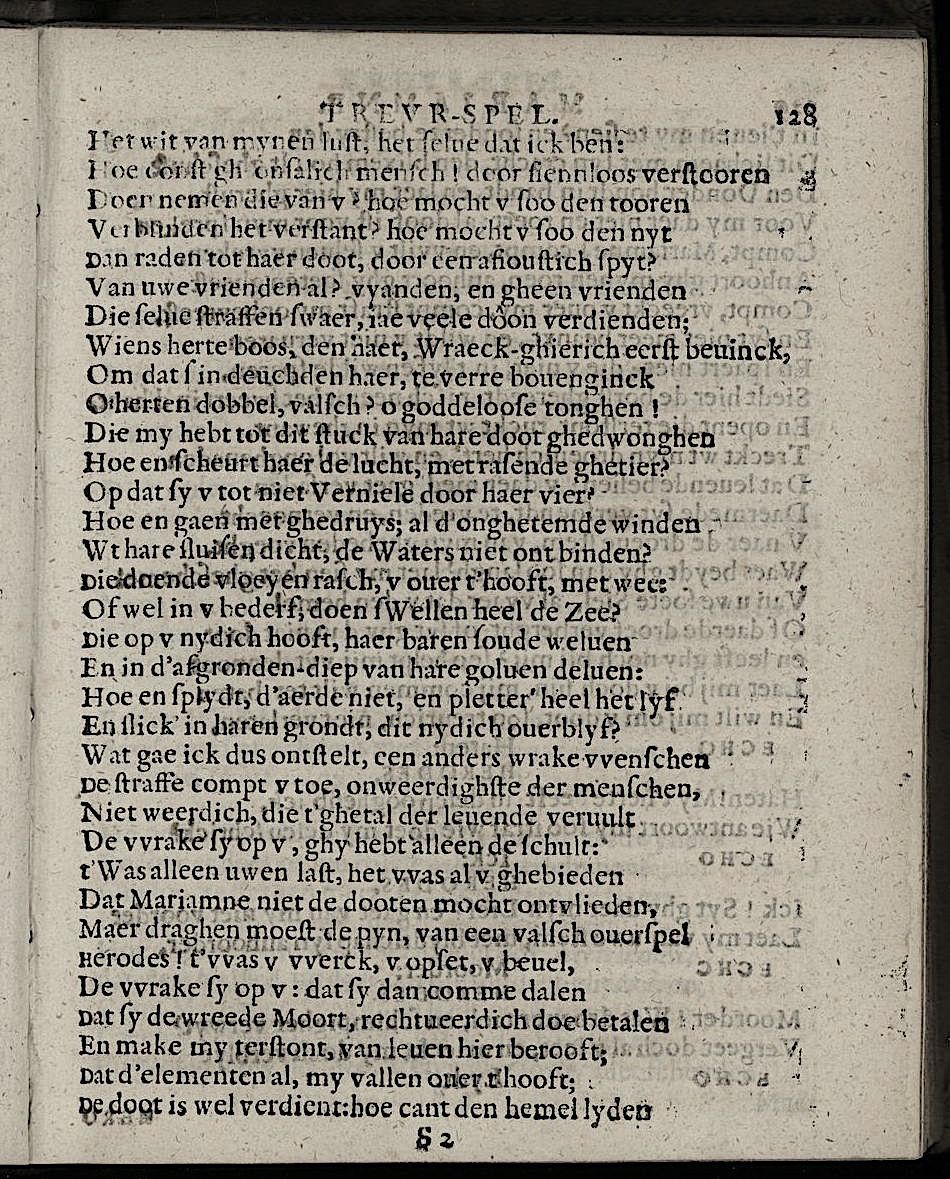 TREVR-SPEL. 128
Het wit van mynen lust, het selue dat ick ben?
Hoe const ghy onsalich mensch ! door siennloos verstooren
Doen nemen die van v ? hoe mocht v soo den tooren
Verblinden het verstant? hoe mocht v soo den nyt
Dan raden tot haer doot, door een afioustich spyt?
Van uwe vrienden al? vyanden, en gheen vrienden
Die selue straffen swaer, iae veele doon verdienden;
Wiens herte boos, den haet, Wraeck-ghierich eerst beuinck,
Om dat s in deuchden haer, te verre bouenginck
O herten dobbel, valsch ? o goddeloose tonghen !
Die my hebt tot dit stuck van hare doot ghedwonghen
Hoe en scheurt haer de lucht, met rasende ghetier?
Op dat sy v tot niet Verniele door haer vier?
Hoe en gaen met ghedruys; al d'onghetemde winden
Wt hare sluisen dicht, de Waters niet ontbinden?
Die doende vloeyen rasch, v ouer t'hooft, met wee:
Of wel in v bederf, doen sWellen heel de Zee?
Die op v nydich hooft, haer baren soude weluen
En in d'afgronden-diep van hare goluen deluen:
Hoe en splydt, d'aerde niet, en pletter' heel het lyf
En slick' in haren grondt, dit nydich ouerblyf?
Wat gae ick dus ontstelt, een anders wrake vvenschen
De straffe compt v toe, onweerdighste der menschen,
Niet weerdich, die t'ghetal der leuende veruult
De vvrake sy op v, ghy hebt alleen de schult:
t'Was alleen uwen last, het vvas al v ghebieden
Dat Mariamne niet de dooten mocht ontvlieden,
Maer draghen moest de pyn, van een valsch ouerspel
Herodes ! t'vvas v vverck, v opset, v beuel,
De vvrake sy op v : dat sy dan comme dalen
Dat sy de wreede Moort, rechtueerdich doe betalen
En make my terstont, van leuen hier berooft;
Dat d'elementen al, my vallen ouer t'hooft;
De doot is wel verdient: hoe cant den hemel lyden
S 2